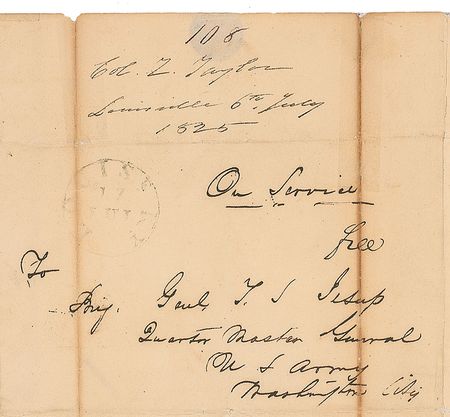 108
Col. Z. Taylor
Louisville 6th July
1825
On Service
free
To
Brig. Genl. T. S Jesup
Quarter Master General
U S Army
Washington City